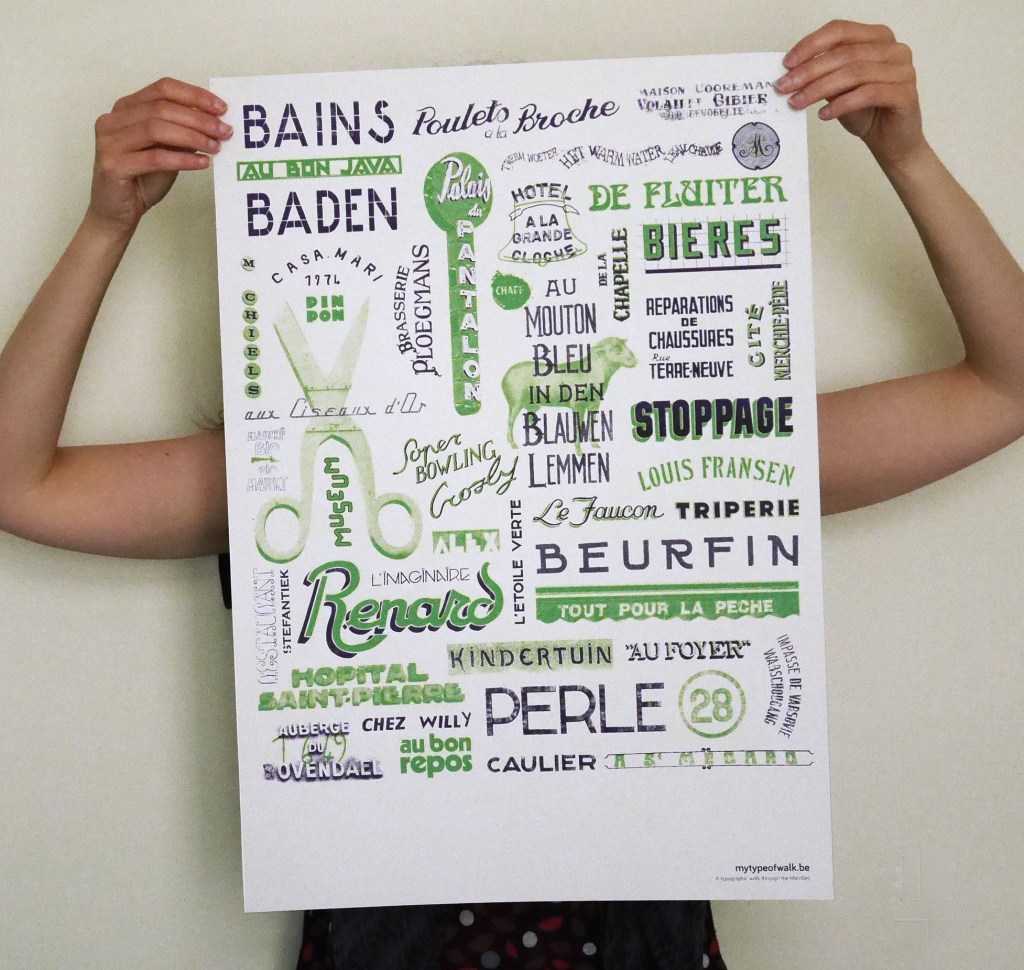 BAINS
Poulets à la Broche
MAISON COOREMAN
VOLAILLE GIBIER
AU BON JAVA
BADEN
Palais du
PANTALON
HET WARM WATER
HOTEL
A LA
GRANDE
CLOCHE
DE FLUITER
BIERES
DE LA
CHAPELLE
M
CHIELS
CASA MARI
1974
DIN
DON
BRASSERIE
PLOEGMANS
CHAFF
AU
MOUTON
BLEU
IN DEN
BLAUWEN
LEMMEN
REPARATIONS
DE
CHAUSSURES
Rue
TERRE-NEUVE
CITÉ
MERCHIE-PÈDE
STOPPAGE
aux Ciseaux d'Or
MARCHÉ
BIO
BIO
MARKT
MUSEUM
Super
BOWLING
Crosly
LOUIS FRANSEN
Le Faucon
TRIPERIE
ALEX
L'ETOILE VERTE
BEURFIN
TOUT POUR LA PECHE
STEFANTIEK
L'IMAGINAIRE
Renard
KINDERTUIN
"AU FOYER"
IMPASSE DE VARSOVIE
WARSCHOUGANG
HOPITAL
SAINT-PIERRE
PERLE
28
AUBERGE
DU
ROVENDAEL
CHEZ WILLY
au bon
repos
CAULIER
A ST MEDARD
mytypeofwalk.be
A typographic walk through the Marolles